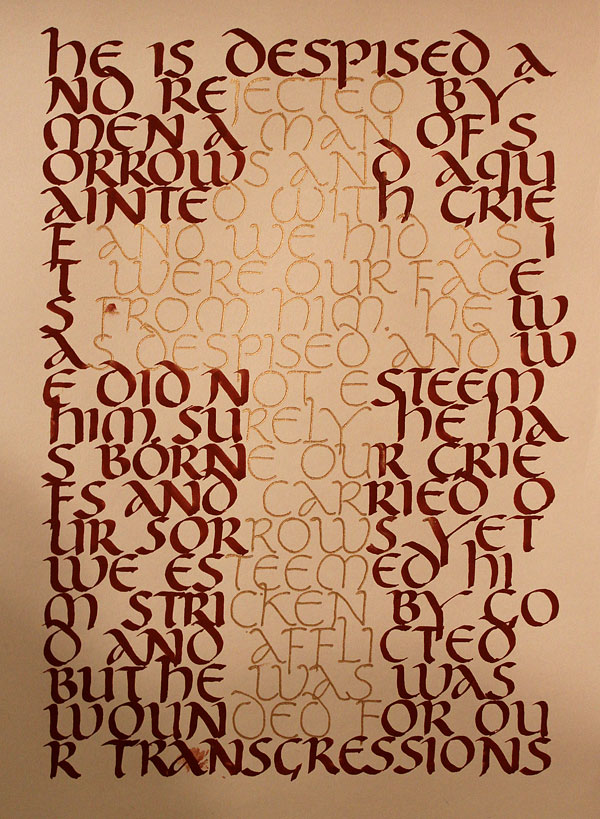 HE IS DESPISED A
ND REJECTED BY
MEN A MAN OF S
ORROWS AND AQU
AINTED WITH GRIE
F AND WE HID AS I
T WERE OUR FACE
S FROM HIM. HE W
AS DESPISED AND W
E DID NOT ESTEEM
HIM. SURELY HE HA
S BORNE OUR GRIE
FS AND CARRIED O
UR SORROWS YET
WE ESTEEMED HI
M STRICKEN BY GO
D AND AFFLICTED
BUT HE WAS WAS
WOUNDED FOR OU
R TRANSGRESSIONS